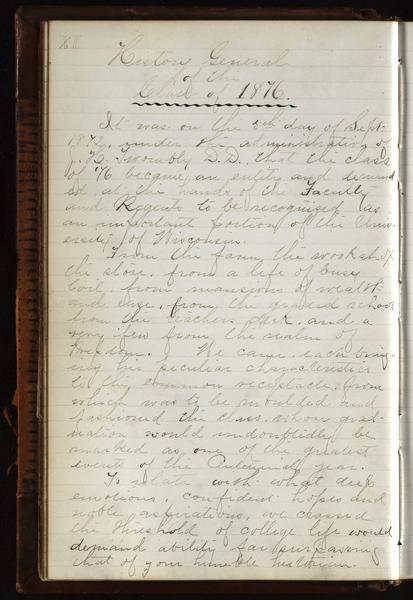 History General
of the
Class of 1876.
It was on the 5th day of Sept.
1872, under the administration of
J. H. Twombly D.D. that the class
of '76 became an entity and demand
ed at the hands of the Faculty
and Regents to be recognized as
an important portion of the Univ-
ersity of Wisconsin.
From the farm, the workshop
the store, from a life of busy
toil, from mansions of wealth
and ease, from the graded school
from the teachers desk, and a
very few from the realm of
Freedom. We came, each bring-
ing his peculiar characteristics
to this common receptacle, from
which was to be moulded and
fashioned the class, whose grad-
uation would undoubtedly be
marked as one of the greatest
events of the Centennial year.
To relate with what deep
emotions, confident hopes and
noble aspirations, we crossed
the threshold of college life would
demand ability far surpassing
that of your humble historian.